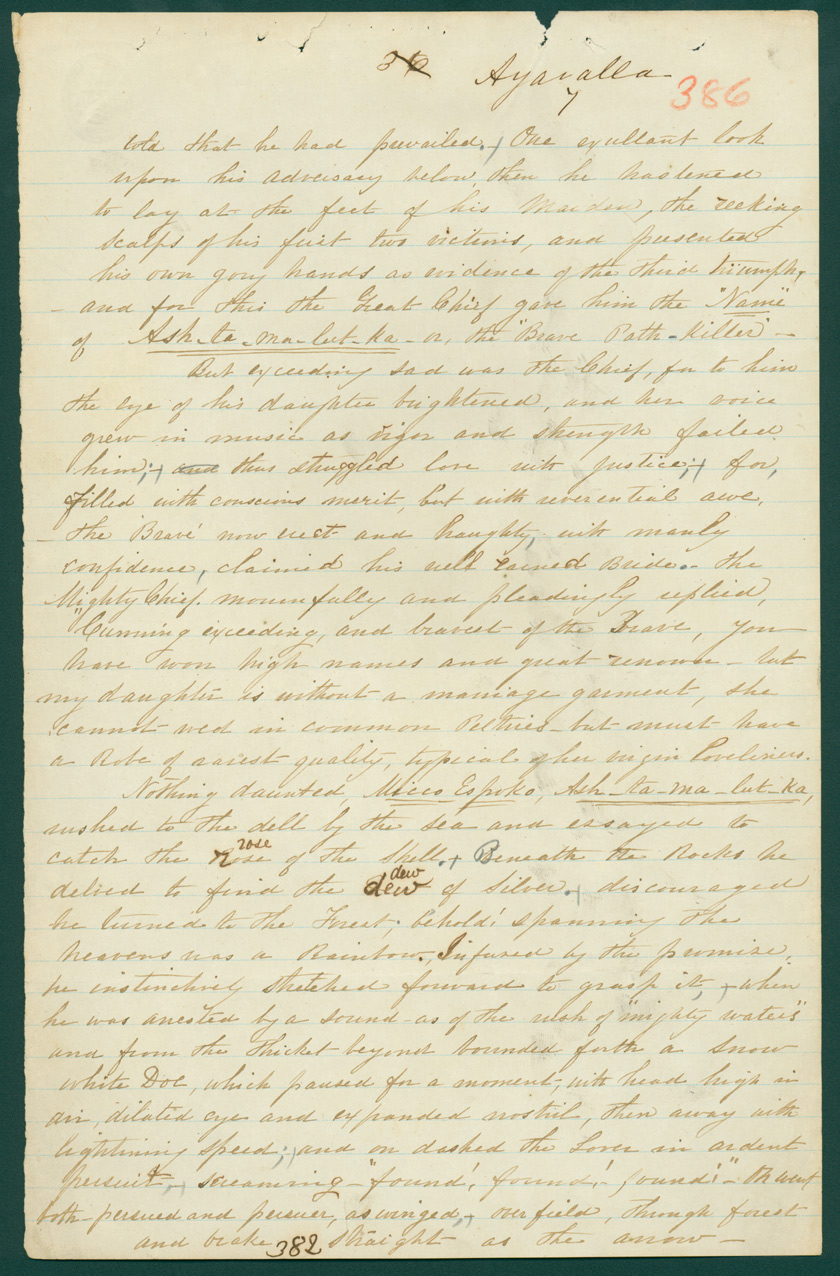 36 Ayavalla 386
7
told that he had prevailed. One exultant look
upon his adversary below, then he hastened
to lay at the feet of his Maiden, the reeking
scalps of his first two victims, and presented
his own gory hands as evidence of the third triumph,
- and for this the Great Chief gave him the "Name"
of Ash-ta-ma-lut-ka - or, the "Brave Path-Killer" -
But exceeding sad was the Chief, for to him
the eye of his daughter brightened, and her voice
grew in music as vigor and strength failed
him; and thus struggled love with justice; for,
filled with conscious merit, but with reverential awe,
- the 'Brave' now erect and haughty, with manly
confidence, claimed his well earned Bride. The
Mighty Chief. mournfully and pleadingly replied,
"Cunning exceeding, and bravest of the Brave, you
have won high names and great renown - but
my daughter is without a marriage garment, she
cannot wed in common Peltries - but must have
a Robe of rarest quality, typical of her virgin loveliness.
Nothing daunted, Micco Espoko, Ash-ta-ma-lut-ka,
rushed to the dell by the sea and essayed to
catch the rose rose of the Shell. Beneath the Rocks he
delved to find the dew dew of Silver. discouraged
he turned to the Forest; behold! spanning the
heavens was a Rainbow. Infused by the promise,
he instinctively stretched forward to grasp it, - when
he was arrested by a sound - as of the rush of "mighty waters"
and from the thicket beyond bounded forth a Snow
white Doe, which paused for a moment, with head high in
air, dilated eye and expanded nostril, then away with
lightining speed; and on dashed the Lover in ardent
persuit, screaming - "found! found! found!" - On went
both persued and persuer, as winged, over field, through forest
and brake 382 straight as the arrow -